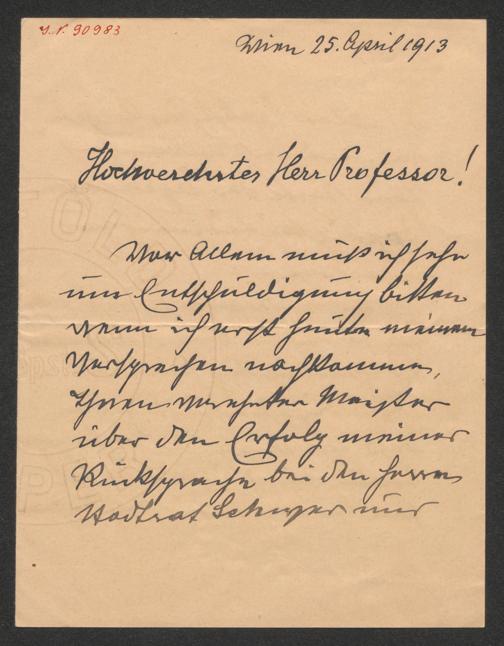 I.N. 90983
Wien 25. April 1913
Hochverehrter Herr Professor!
Vor Allem muß ich sehr
um Entschuldigung bitten
wenn ich erst heute meinem
Versprechen nachkomme,
Ihnen verehrter Meister
über den Erfolg meiner
Rücksprache bei den Herren
Stadtrat und